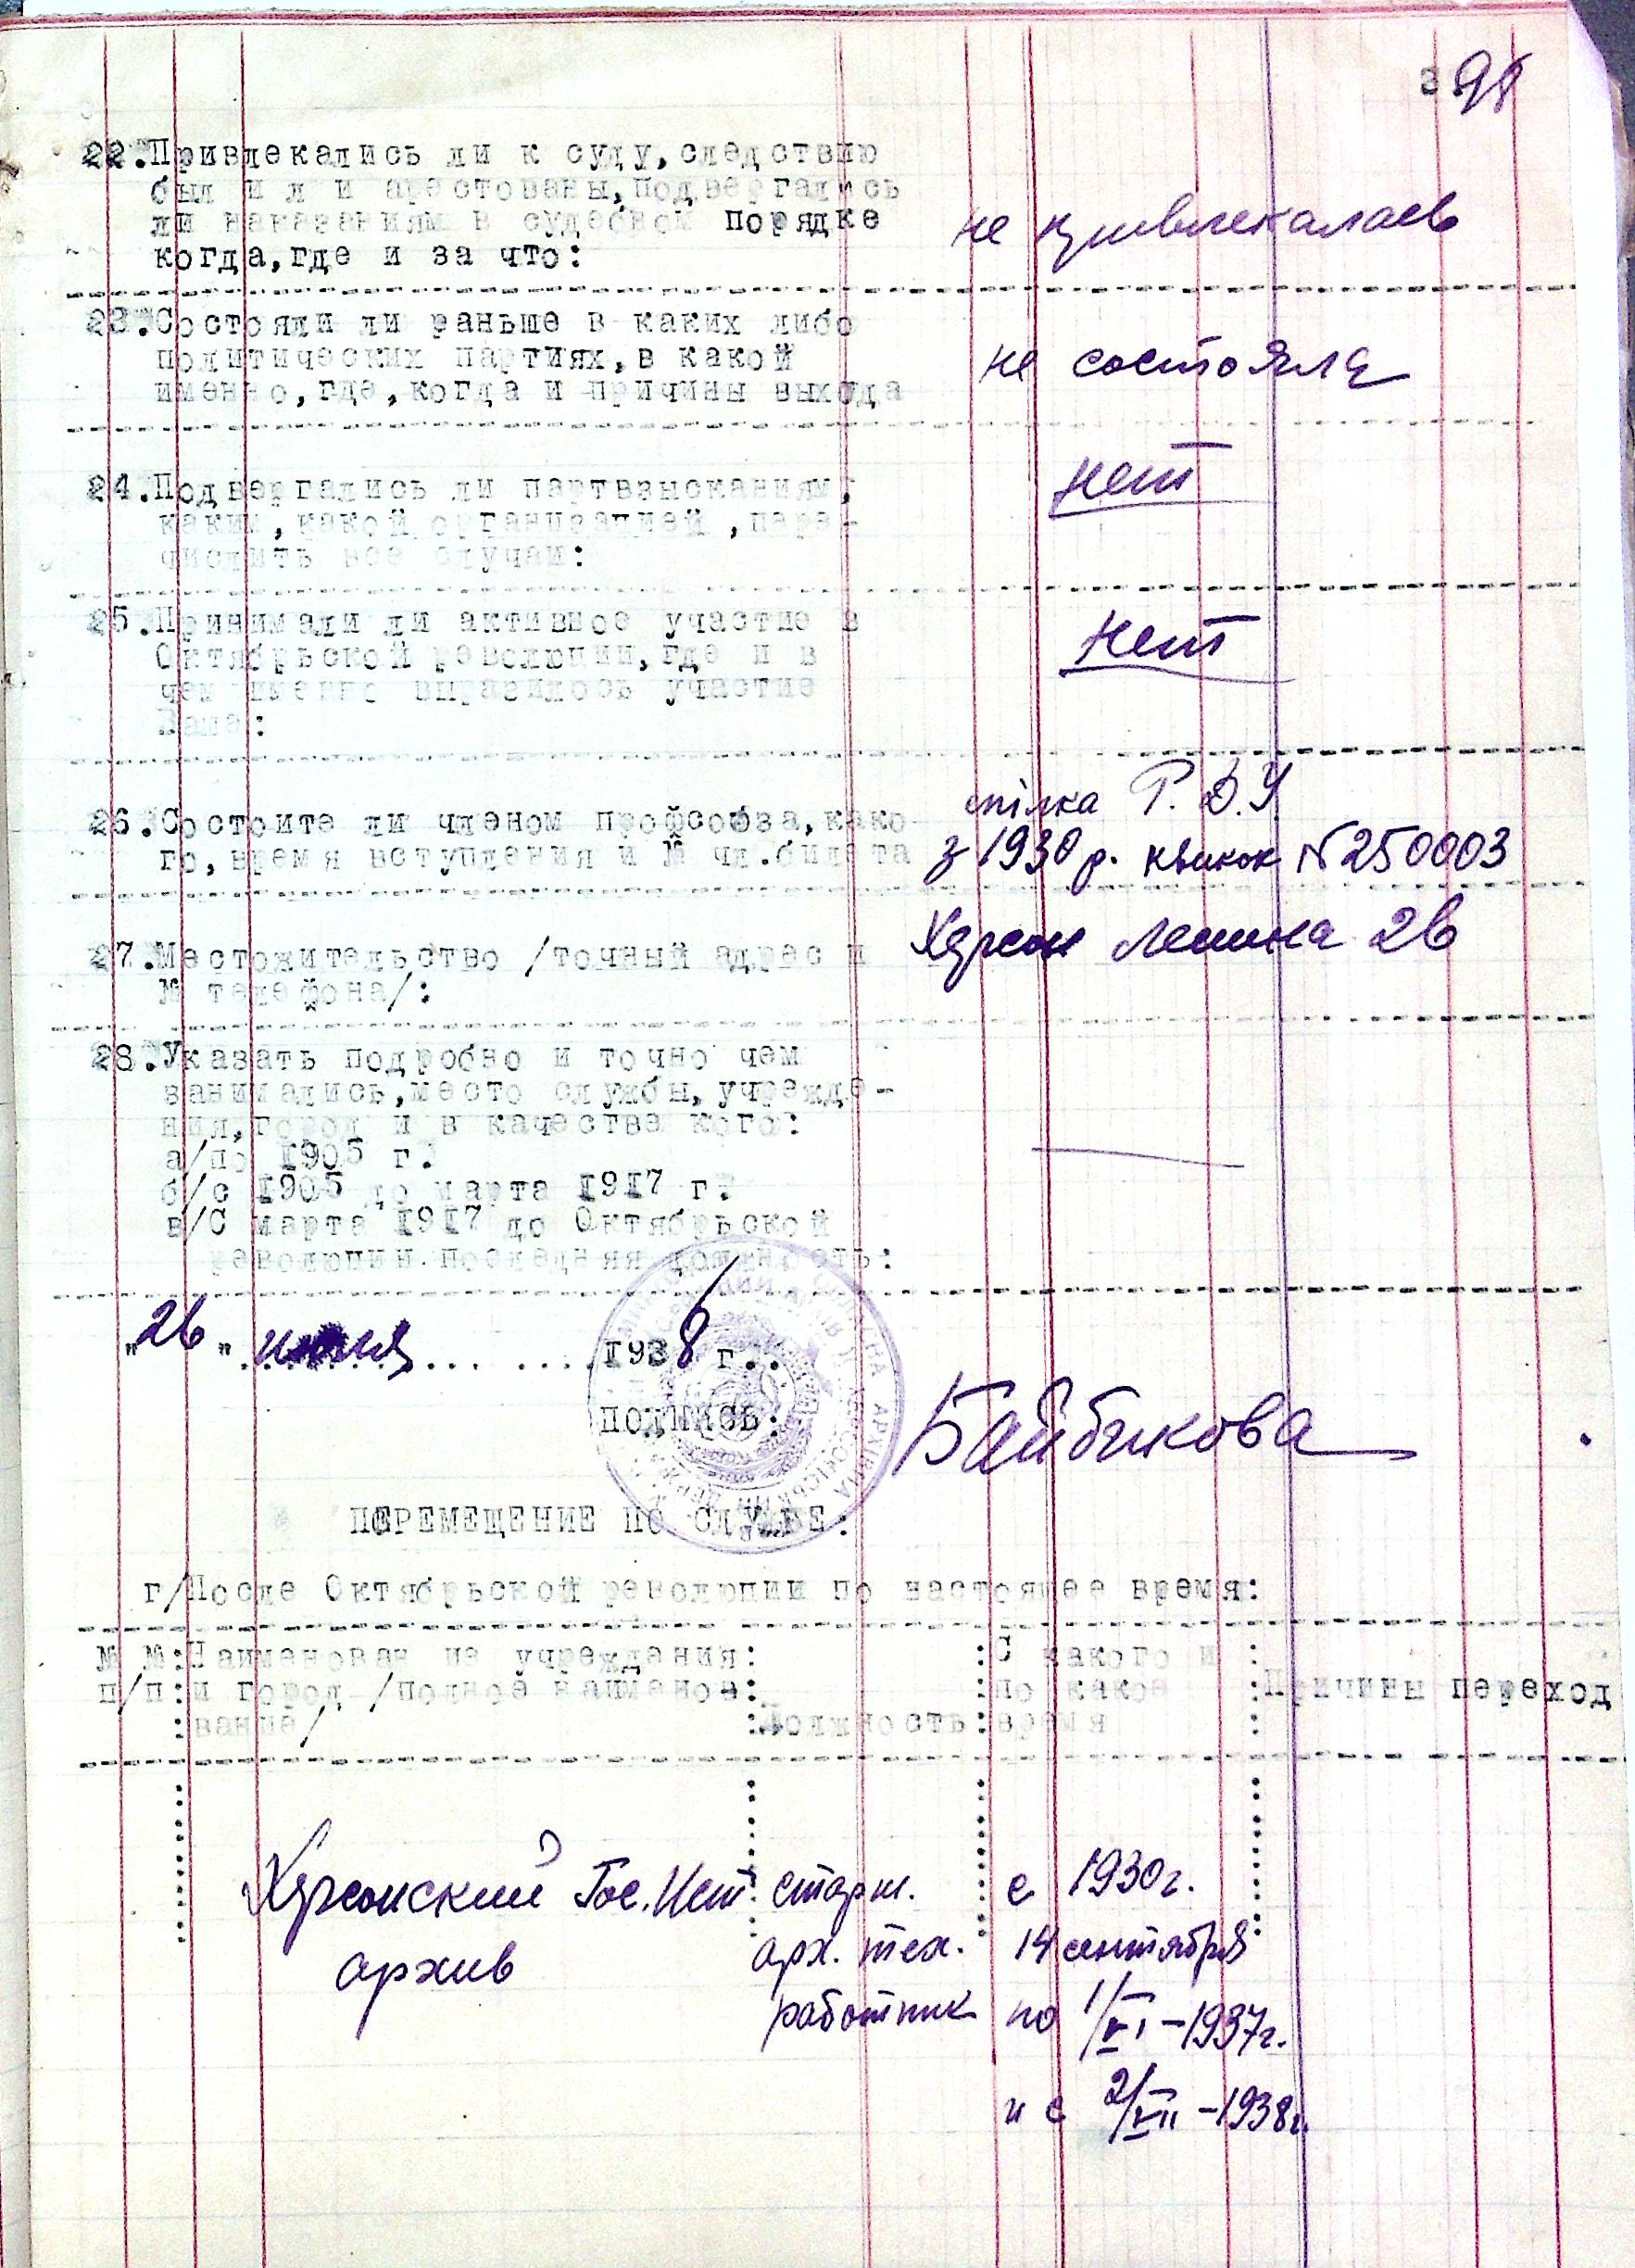 3 98
22. Привлекались ли к суду, следствию
был и л и арестованы, подвергались
ли наказаниям в судебном порядке
когда, где и за что:
не привлекалась
23. Состояли ли раньше в каких либо
политических партиях, в какой
именно, где, когда и причины выхода
не состояла
24. Подвергались ли партвзысканиям,
каким, какой организацией, пере-
числить все случаи:
нет
25. Принимали ли активное участие в
Октябрьской революции, где и в
чем именно выразилось участие
Ваше:
нет
26. Состоите ли членом профсоюза, како-
го, время вступления и № чл. билета
спілка Р. Д. У.
з 1930 р. квиток № 250003
27. Местожительство /точный адрес и
№ телефона/:
Херсон Ленина 26
28. Указать подробно и точно чем
занимались, место службы, учрежде-
ния, город и в качестве кого:
а/по 1905 г.
б/с 1905 до марта 1917 г.
в/С марта 1917 до Октябрьской
революции последняя должность:
"26" июля 1938 г..
подпись: Байбикова
ПЕРЕМЕЩЕНИЕ ПО СЛУЖБЕ:
г/После Октябрьской революции по настоящее время:
№ № п/п : Наименован ие учреждения и город /полное наименование/ : Должность : С какого и по какое время : Причины переход
Херсонский Гос. Ист. старш. с 1930 г.
архив арх. тех. 14 сентября
работник по 1/VI – 1937 г.
и с 2/VII – 1938 г.